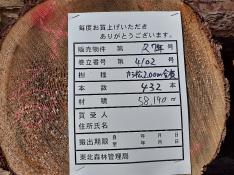 毎度お買上げいただき
ありがとうございます。
販売物件 第 号
巻立番号 第 4102 号
樹種 カラ松 2.00m
本数 432 本
材積 58.190 m
買受人
住所氏名
搬出期限 自 年 月 日
至 年 月 日
東北森林管理局